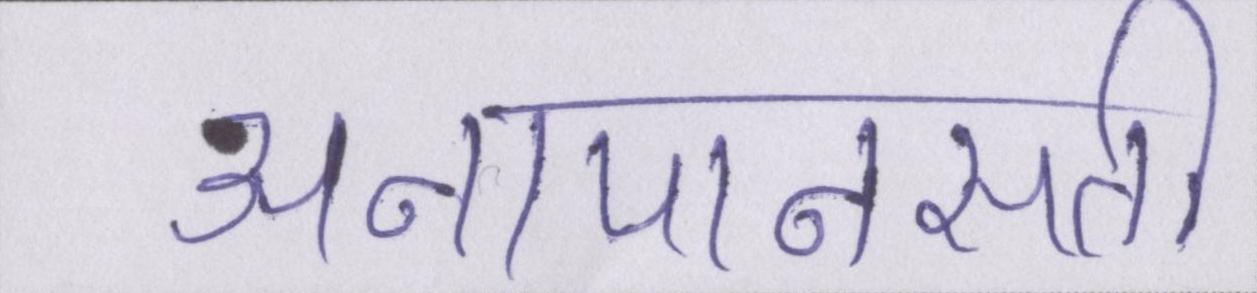 अनापानसती